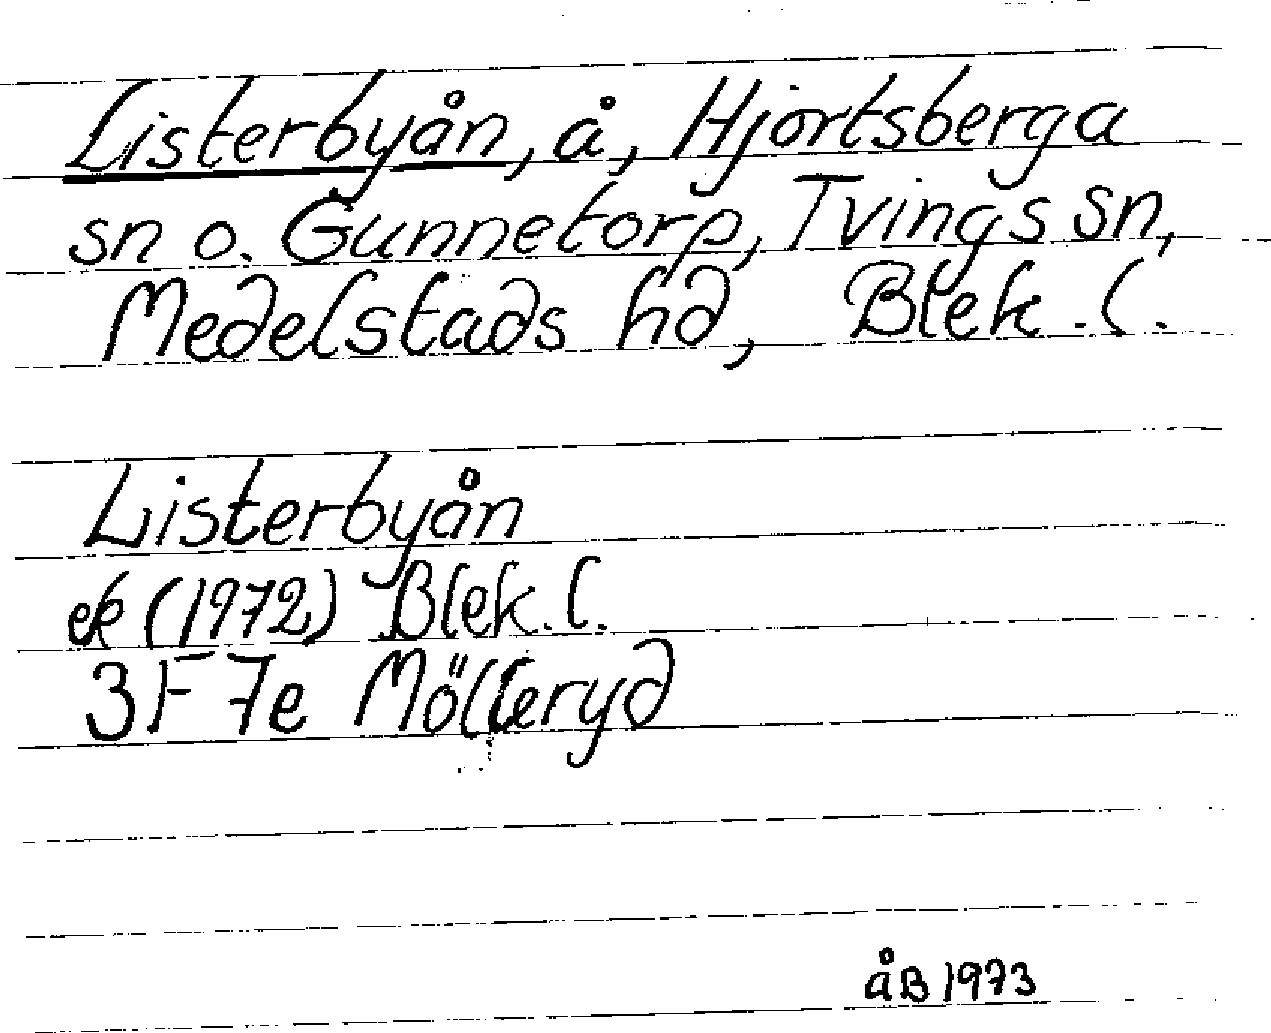 Listerbyån, å, Hjortsberga
sn o. Gunnetorp, Tvings sn,
Medelstads hd, Blek. l.
Listerbyån
ek (1972) Blek. l.
3F 7e Mölleryd
åB 1973